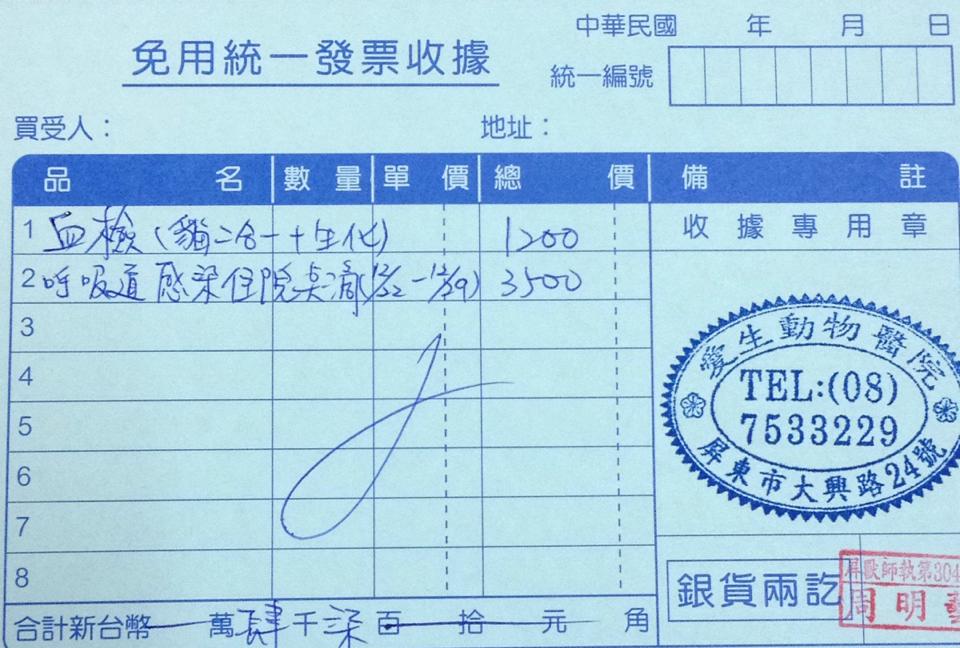 中華民國 年 月 日
免用統一發票收據
統一編號
買受人： 地址：
品名 數量 單價 總價 備註
1 血檢（貓二合一+生化） 1200
收據專用章
2 呼吸道感染住院點滴(12/22-12/29) 3500
3
4
5
6
7
8
愛生動物醫院
TEL:(08)
7533229
屏東市大興路24號
銀貨兩訖
屏獸師執第304
周明
合計新台幣 萬肆千柒百拾元角